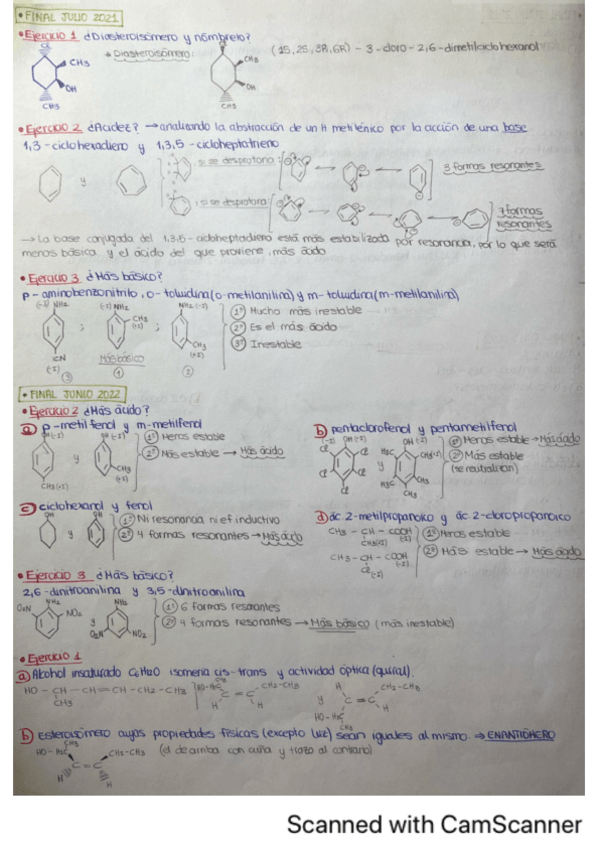 • FINAL JULIO 2021
• Ejercicio 1 ¿Diasteroisómero y nombrelo?
Cl CH3 OH CH3
• Diasteroisómero:
CH3 OH CH3
(1S, 2S, 3R, 6R) - 3 - cloro - 2,6 - dimetilciclohexanol
• Ejercicio 2 ¿Acidez? → analizando la abstracción de un H metilénico por la acción de una base
1,3 - ciclohexadieno y 1,3,5 - cicloheptatrieno
y
; si se desprotona:
3 formas resonantes
; si se desprotona:
7 formas
resonantes
→ La base conjugada del 1,3,5 - cicloheptadieno está más estabilizada por resonancia, por lo que será
menos básica y el ácido del que proviene, más ácido.
• Ejercicio 3 ¿Más básico?
p - aminobenzonitrilo, o - toluidina (o-metilanilina) y m - toluidina (m-metilanilina)
(-I) NH2 ; (-I) NH2 ; NH2 (-I)
CH3 (+I)
CN (-I) ③
Más básico ①
CH3 (+I) ②
1º Mucho más inestable
2º Es el más ácido
3º Inestable
• FINAL JUNIO 2022
• Ejercicio 2 ¿Más ácido?
a) p - metil fenol y m - metilfenol
OH (-I) y OH (-I)
CH3 (+I) CH3 (+I)
1º Menos estable
2º Más estable → Más ácido
b) pentaclorofenol y pentametilfenol
(-I) OH (-I) y OH (-I)
Cl Cl Cl Cl Cl H3C H3C CH3 CH3 CH3
1º Menos estable → Más ácido
2º Más estable
(se neutralizan)
c) ciclohexanol y fenol
OH y OH
1º Ni resonancia ni ef inductivo
2º 4 formas resonantes → Más ácido
d) ác 2-metilpropanoico y ác 2-cloropropanoico
CH3 - CH - COOH (-I)
CH3 (+I)
CH3 - CH - COOH (-I)
Cl (-I)
1º Menos estable
2º Más estable → Más ácido
• Ejercicio 3 ¿Más básico?
2,6 - dinitroanilina y 3,5 - dinitroanilina
O2N NH2 NO2 y NH2 O2N NO2
1º 6 formas resonantes
2º 4 formas resonantes → Más básico (más inestable)
• Ejercicio 1
a) Alcohol insaturado C6H12O isomería cis - trans y actividad óptica (quiral).
HO - CH - CH = CH - CH2 - CH3
CH3
HO - H3C CH2 - CH3
C = C
H H
y
H CH2 - CH3
C = C
HO - H3C H
CH3
b) Esteroisómero cuyas propiedades físicas (excepto luz) sean iguales al mismo ⇒ ENANTIÓMERO
CH3
HO - H3C CH2 - CH3
C = C
H H
(el de arriba con cuña y trazo al contrario)
Scanned with CamScanner